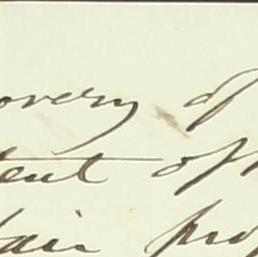 overy of
tent of
tain pro